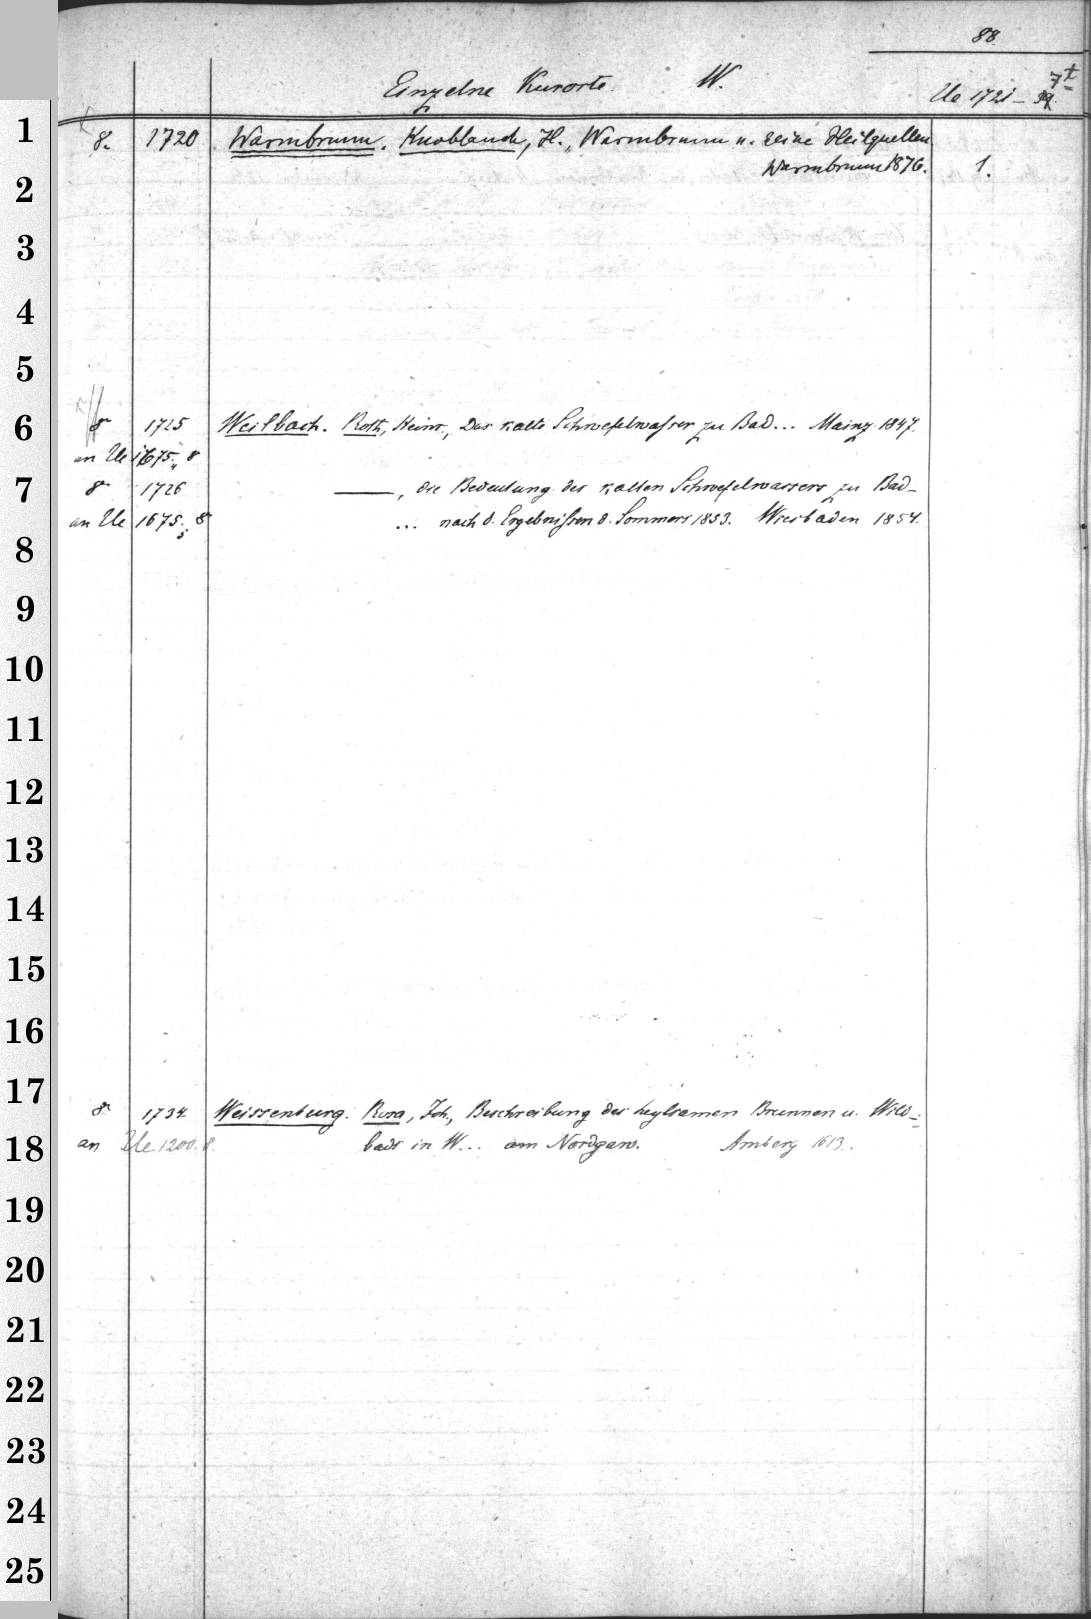 88
Einzelne Kurorte. W. Ue 1721-
1
8. 1720 Warmbrunn. Knoblauch, H., Warmbrunn u. seine Heilquellen
Warmbrunn 1876. 1.
2
3
4
5
6
8° 1725 Weilbach. Roth, Heinr., Das kalte Schwefelwasser zu Bad... Mainz 1847.
an Ue 1675. 8
7
8° 1726 ———, die Bedeutung des kalten Schwefelwassers zu Bad-
an Ue 1675. 8 ... nach d. Ergebnissen d. Sommers 1853. Wiesbaden 1854.
8
9
10
11
12
13
14
15
16
17
8° 1734. Weissenburg. Rosa, Joh., Beschreibung des heylsamen Brunnen u. Wild-
18
an Ue 1200. 8. bads in W... am Nordgaw. Amberg 1613.
19
20
21
22
23
24
25